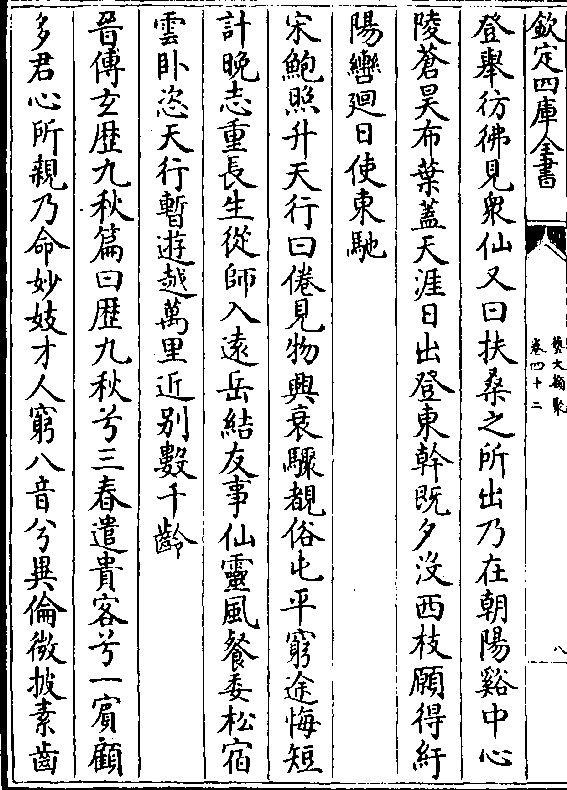 欽定四庫全書
藝文類聚
卷四十二
八
登舉彷彿見衆仙又曰扶桑之所出乃在朝陽谿中心
陵蒼昊布葉蓋天涯日出登東幹既夕没西枝願得紆
陽轡廻日使東馳
宋鮑照升天行曰倦見物興衰驟覩俗屯平窮途悔短
計晚志重長生從師入逺岳結友事仙靈風餐委松宿
雲卧恣天行暫遊越萬里近别數千齡
晉傅玄歴九秋篇曰歴九秋兮三春遣貴客兮一賓顧
多君心所親乃命妙妓才人窮八音兮異倫微披素齒